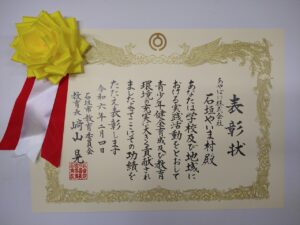 表彰状
あやぱに株式会社
石垣やいま村殿
あなたは学校及び地域に
おける実践活動をとおして
青少年健全育成及び教育
環境の充実に大きく貢献され
ましたのでここにその功績を
たたえ表彰します
令和六年二月四日
石垣市教育委員会
教育長 﨑山晃